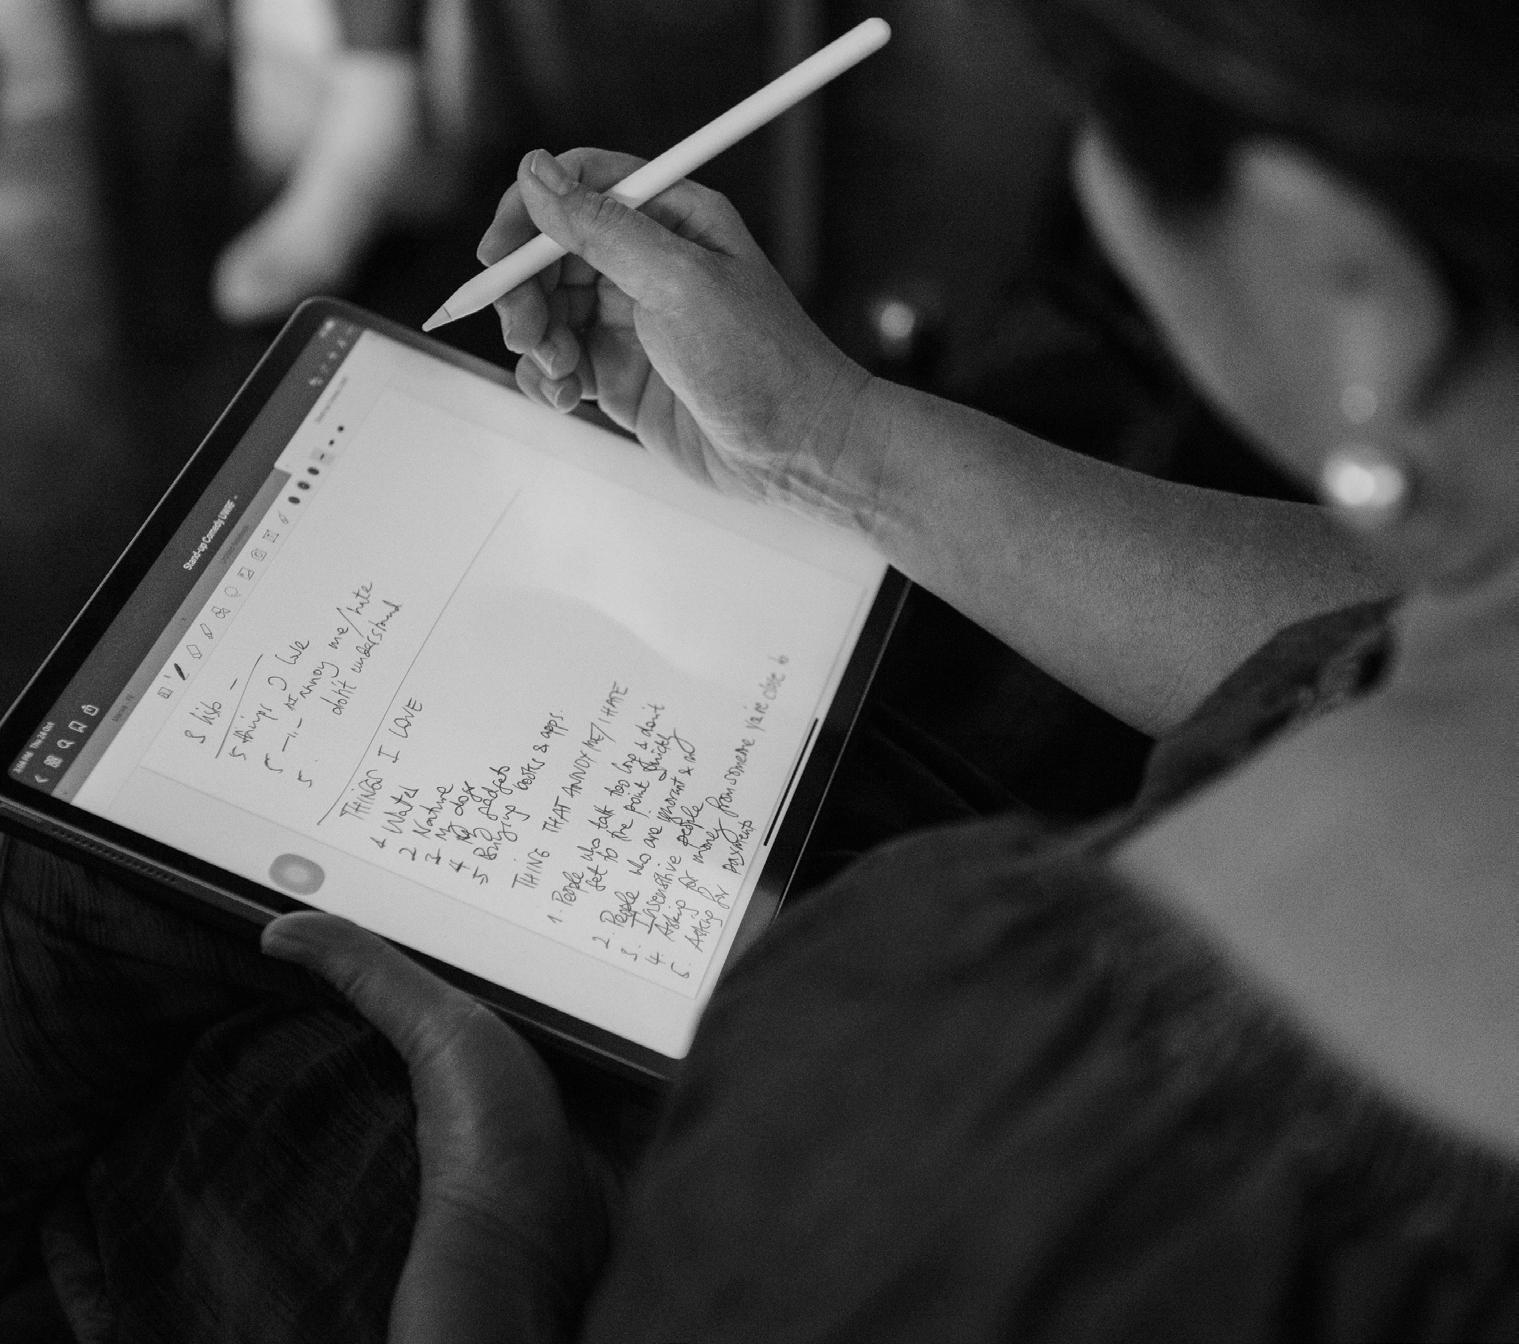 Stand-up Comedy LWWF
3 lists -
5 things I love
5 -11- annoy me/hate
5. don't understand
THINGS I LOVE
1 Water
2 Nature
3 My dogs
4 gadgets
5 Buying books & apps.
THING THAT ANNOY ME/I HATE
1. People who talk too long & don't
get to the point quickly
2. People who are ignorant &
3. Insensitive people
4 Asking for money from someone you're close to
5. Asking for payments